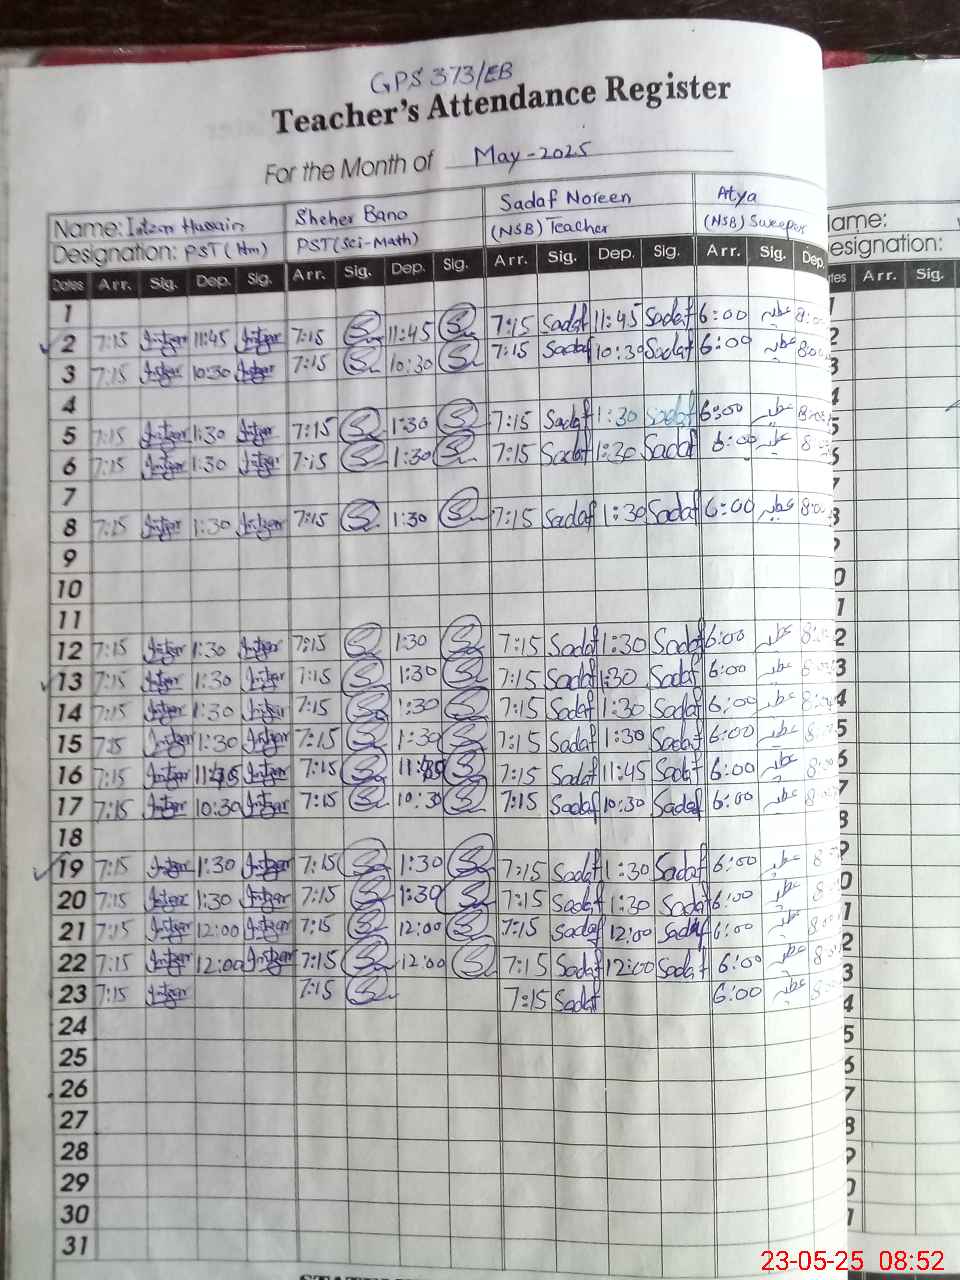 GPS 373/EB
Teacher's Attendance Register
For the Month of May-2025
Name: Intzar Hussain Sheher Bano Sadaf Noreen Atya
Designation: PST (Hm) PST (Sci-Math) (NSB) Teacher (NSB) Sweeper
Dates Arr. Sig. Dep. Sig. Arr. Sig. Dep. Sig. Arr. Sig. Dep. Sig. Arr. Sig. Dep.
1
2 7:15 Intzar 11:45 Intzar 7:15 11:45 7:15 Sadaf 11:45 Sadaf 6:00 عطیہ 8:00
3 7:15 Intzar 10:30 Intzar 7:15 10:30 7:15 Sadaf 10:30 Sadaf 6:00 عطیہ 8:00
4
5 7:15 Intzar 1:30 Intzar 7:15 1:30 7:15 Sadaf 1:30 Sadaf 6:00 عطیہ 8:00
6 7:15 Intzar 1:30 Intzar 7:15 1:30 7:15 Sadaf 1:30 Sadaf 6:00 عطیہ 8
7
8 7:15 Intzar 1:30 Intzar 7:15 1:30 7:15 Sadaf 1:30 Sadaf 6:00 عطیہ 8:00
9
10
11
12 7:15 Intzar 1:30 Intzar 7:15 1:30 7:15 Sadaf 1:30 Sadaf 6:00 عطیہ 8:00
13 7:15 Intzar 1:30 Intzar 7:15 1:30 7:15 Sadaf 1:30 Sadaf 6:00 عطیہ 8:00
14 7:15 Intzar 1:30 Intzar 7:15 1:30 7:15 Sadaf 1:30 Sadaf 6:00 عطیہ 8:00
15 7:15 Intzar 1:30 Intzar 7:15 1:30 7:15 Sadaf 1:30 Sadaf 6:00 عطیہ 8:00
16 7:15 Intzar 11:45 Intzar 7:15 11:45 7:15 Sadaf 11:45 Sadaf 6:00 عطیہ 8:00
17 7:15 Intzar 10:30 Intzar 7:15 10:30 7:15 Sadaf 10:30 Sadaf 6:00 عطیہ 8:00
18
19 7:15 Intzar 1:30 Intzar 7:15 1:30 7:15 Sadaf 1:30 Sadaf 6:00 عطیہ 8:00
20 7:15 Intzar 1:30 Intzar 7:15 1:30 7:15 Sadaf 1:30 Sadaf 6:00 عطیہ 8:00
21 7:15 Intzar 12:00 Intzar 7:15 12:00 7:15 Sadaf 12:00 Sadaf 6:00 عطیہ 8:00
22 7:15 Intzar 12:00 Intzar 7:15 12:00 7:15 Sadaf 12:00 Sadaf 6:00 عطیہ 8:00
23 7:15 Intzar 7:15 7:15 Sadaf 6:00 عطیہ 8:00
24
25
26
27
28
29
30
31
Arr. Sig.
23-05-25 08:52